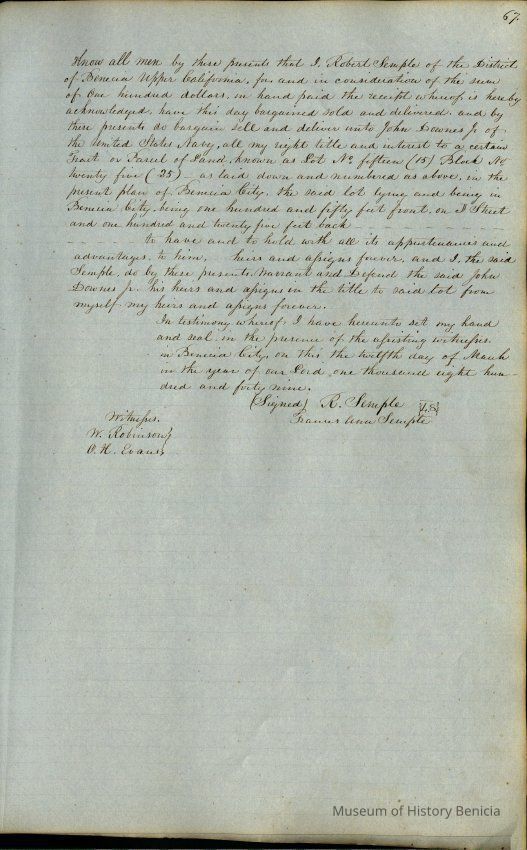 67.
Know all men by these presents that I, Robert Semple of the District
of Benecia Upper California, for and in consideration of the sum
of One hundred dollars, in hand paid the receipt whereof is hereby
acknowledged, have this day bargained sold and delivered, and by
these presents do bargain sell and deliver unto John Downes Jr. of
the United States Navy, all my right title and interest to a certain
Tract or Parcel of Land, known as Lot No fifteen (15) Block No
twenty five (25) as laid down and numbered as above, in the
present plan of Benecia City, the said lot lying and being in
Benecia City, being one hundred and fifty feet front, on I Street
and one hundred and twenty five feet back
to have and to hold with all its appurtenances and
advantages, to him, heirs and assigns forever, and I, the said
Semple, do by these presents, Warrant and Defend the said John
Downes Jr. his heirs and assigns in the title to said lot from
myself my heirs and assigns forever.
In testimony whereof I have hereunto set my hand
and seal, in the presence of the assisting witnesses
in Benecia City, on this the twelfth day of March
in the year of our Lord, one thousand eight hun-
dred and forty nine.
(Signed) R. Semple
Frances Ann Semple
Witnesses.
W. Robinson
O. H. Evans
Museum of History Benicia